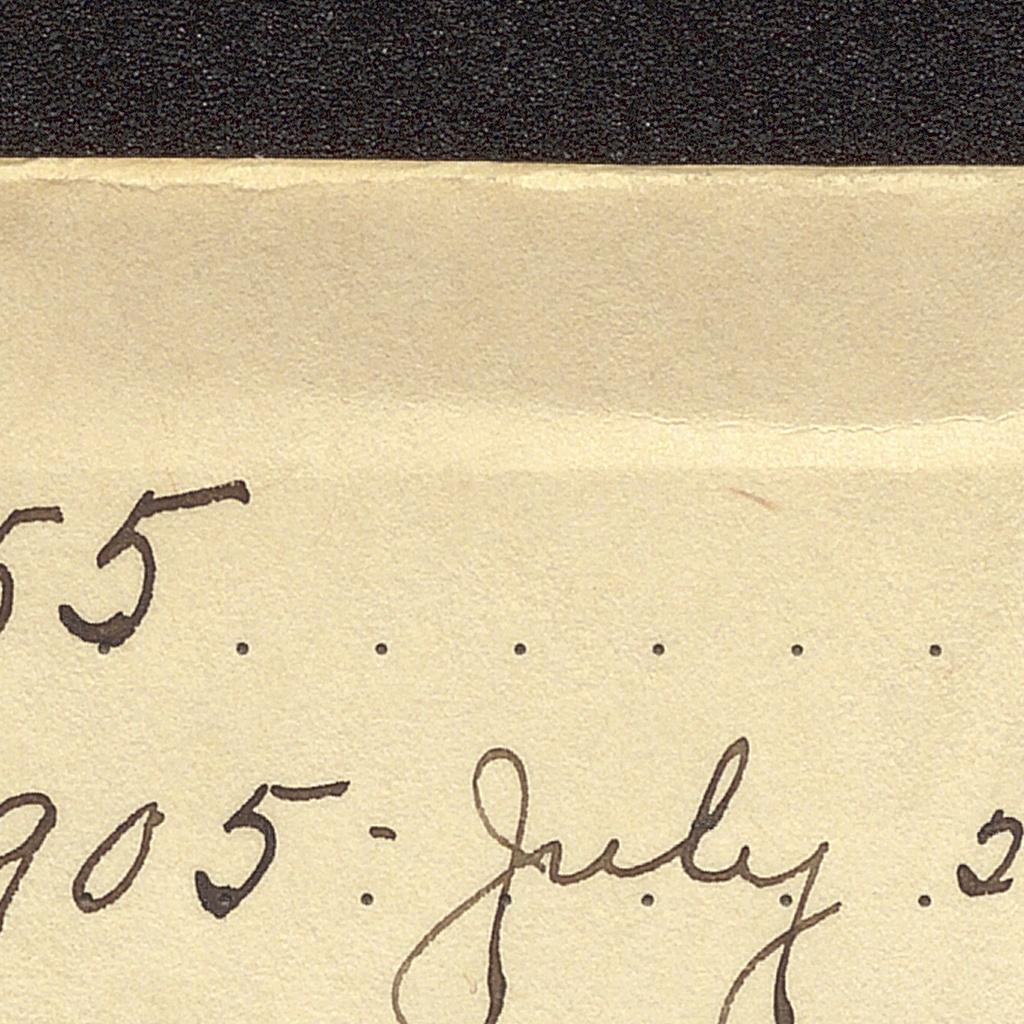 55
905 - July 2